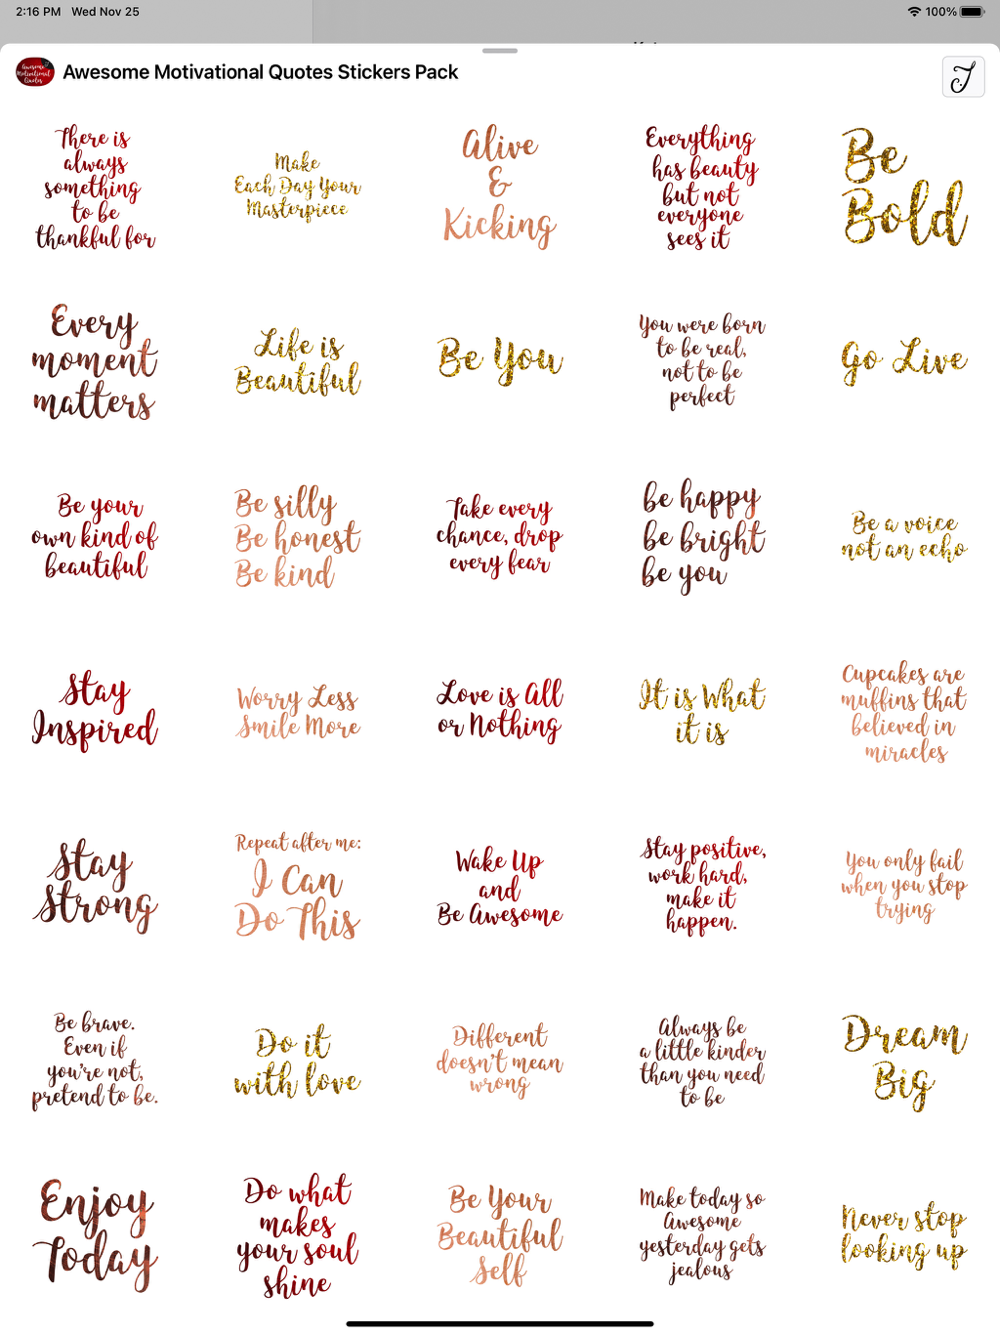 2:16 PM Wed Nov 25
100%
Awesome
Motivational
Quotes
Awesome Motivational Quotes Stickers Pack
There is
always
something
to be
thankful for
Make
Each Day Your
Masterpiece
Alive
&
Kicking
Everything
has beauty
but not
everyone
sees it
Be
Bold
Every
moment
matters
Life is
Beautiful
Be You
You were born
to be real,
not to be
perfect
Go Live
Be your
own kind of
beautiful
Be silly
Be honest
Be kind
Take every
chance, drop
every fear
be happy
be bright
be you
Be a voice
not an echo
Stay
Inspired
Worry Less
Smile More
Love is All
or Nothing
It is What
it is
Cupcakes are
muffins that
believed in
miracles
Stay
Strong
Repeat after me:
I Can
Do This
Wake Up
and
Be Awesome
Stay positive,
work hard,
make it
happen.
You only fail
when you stop
trying
Be brave.
Even if
you're not,
pretend to be.
Do it
with love
Different
doesn't mean
wrong
Always be
a little kinder
than you need
to be
Dream
Big
Enjoy
Today
Do what
makes
your soul
shine
Be Your
Beautiful
Self
Make today so
Awesome
yesterday gets
jealous
Never stop
looking up